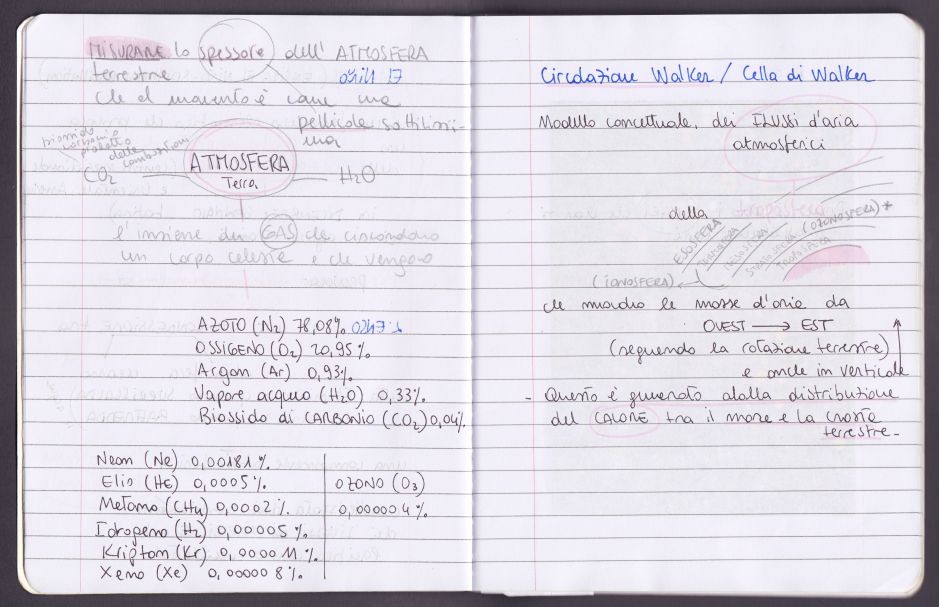 MISURARE lo spessore dell' ATMOSFERA
terrestre
che al momento è come una
pellicola sottilissi-
ma
biossido
carbonio
prodotto
delle
combustioni
CO₂
ATMOSFERA
Terra
H₂O
l'insieme dei GAS che circondano
un corpo celeste e che vengono
AZOTO (N₂) 78,08%
OSSIGENO (O₂) 20,95%
Argon (Ar) 0,93%
Vapore acqueo (H₂O) 0,33%
Biossido di CARBONIO (CO₂) 0,04%
Neon (Ne) 0,00181%
Elio (He) 0,0005%
Metano (CH₄) 0,0002%
Idrogeno (H₂) 0,00005%
Kripton (Kr) 0,000011%
Xeno (Xe) 0,000008%
OZONO (O₃)
0,000004%
Circolazione Walker / Cella di Walker
Modello concettuale, dei FLUSSI d'aria
atmosferici
della
ESOSFERA
TERMOSFERA
MESOSFERA
STRATOSFERA (OZONOSFERA)*
TROPOSFERA
(IONOSFERA)
che muovono le masse d'aria da
OVEST → EST
(seguendo la rotazione terrestre)
e anche in verticale
- Questo è generato dalla distribuzione
del CALORE tra il mare e la crosta
terrestre-